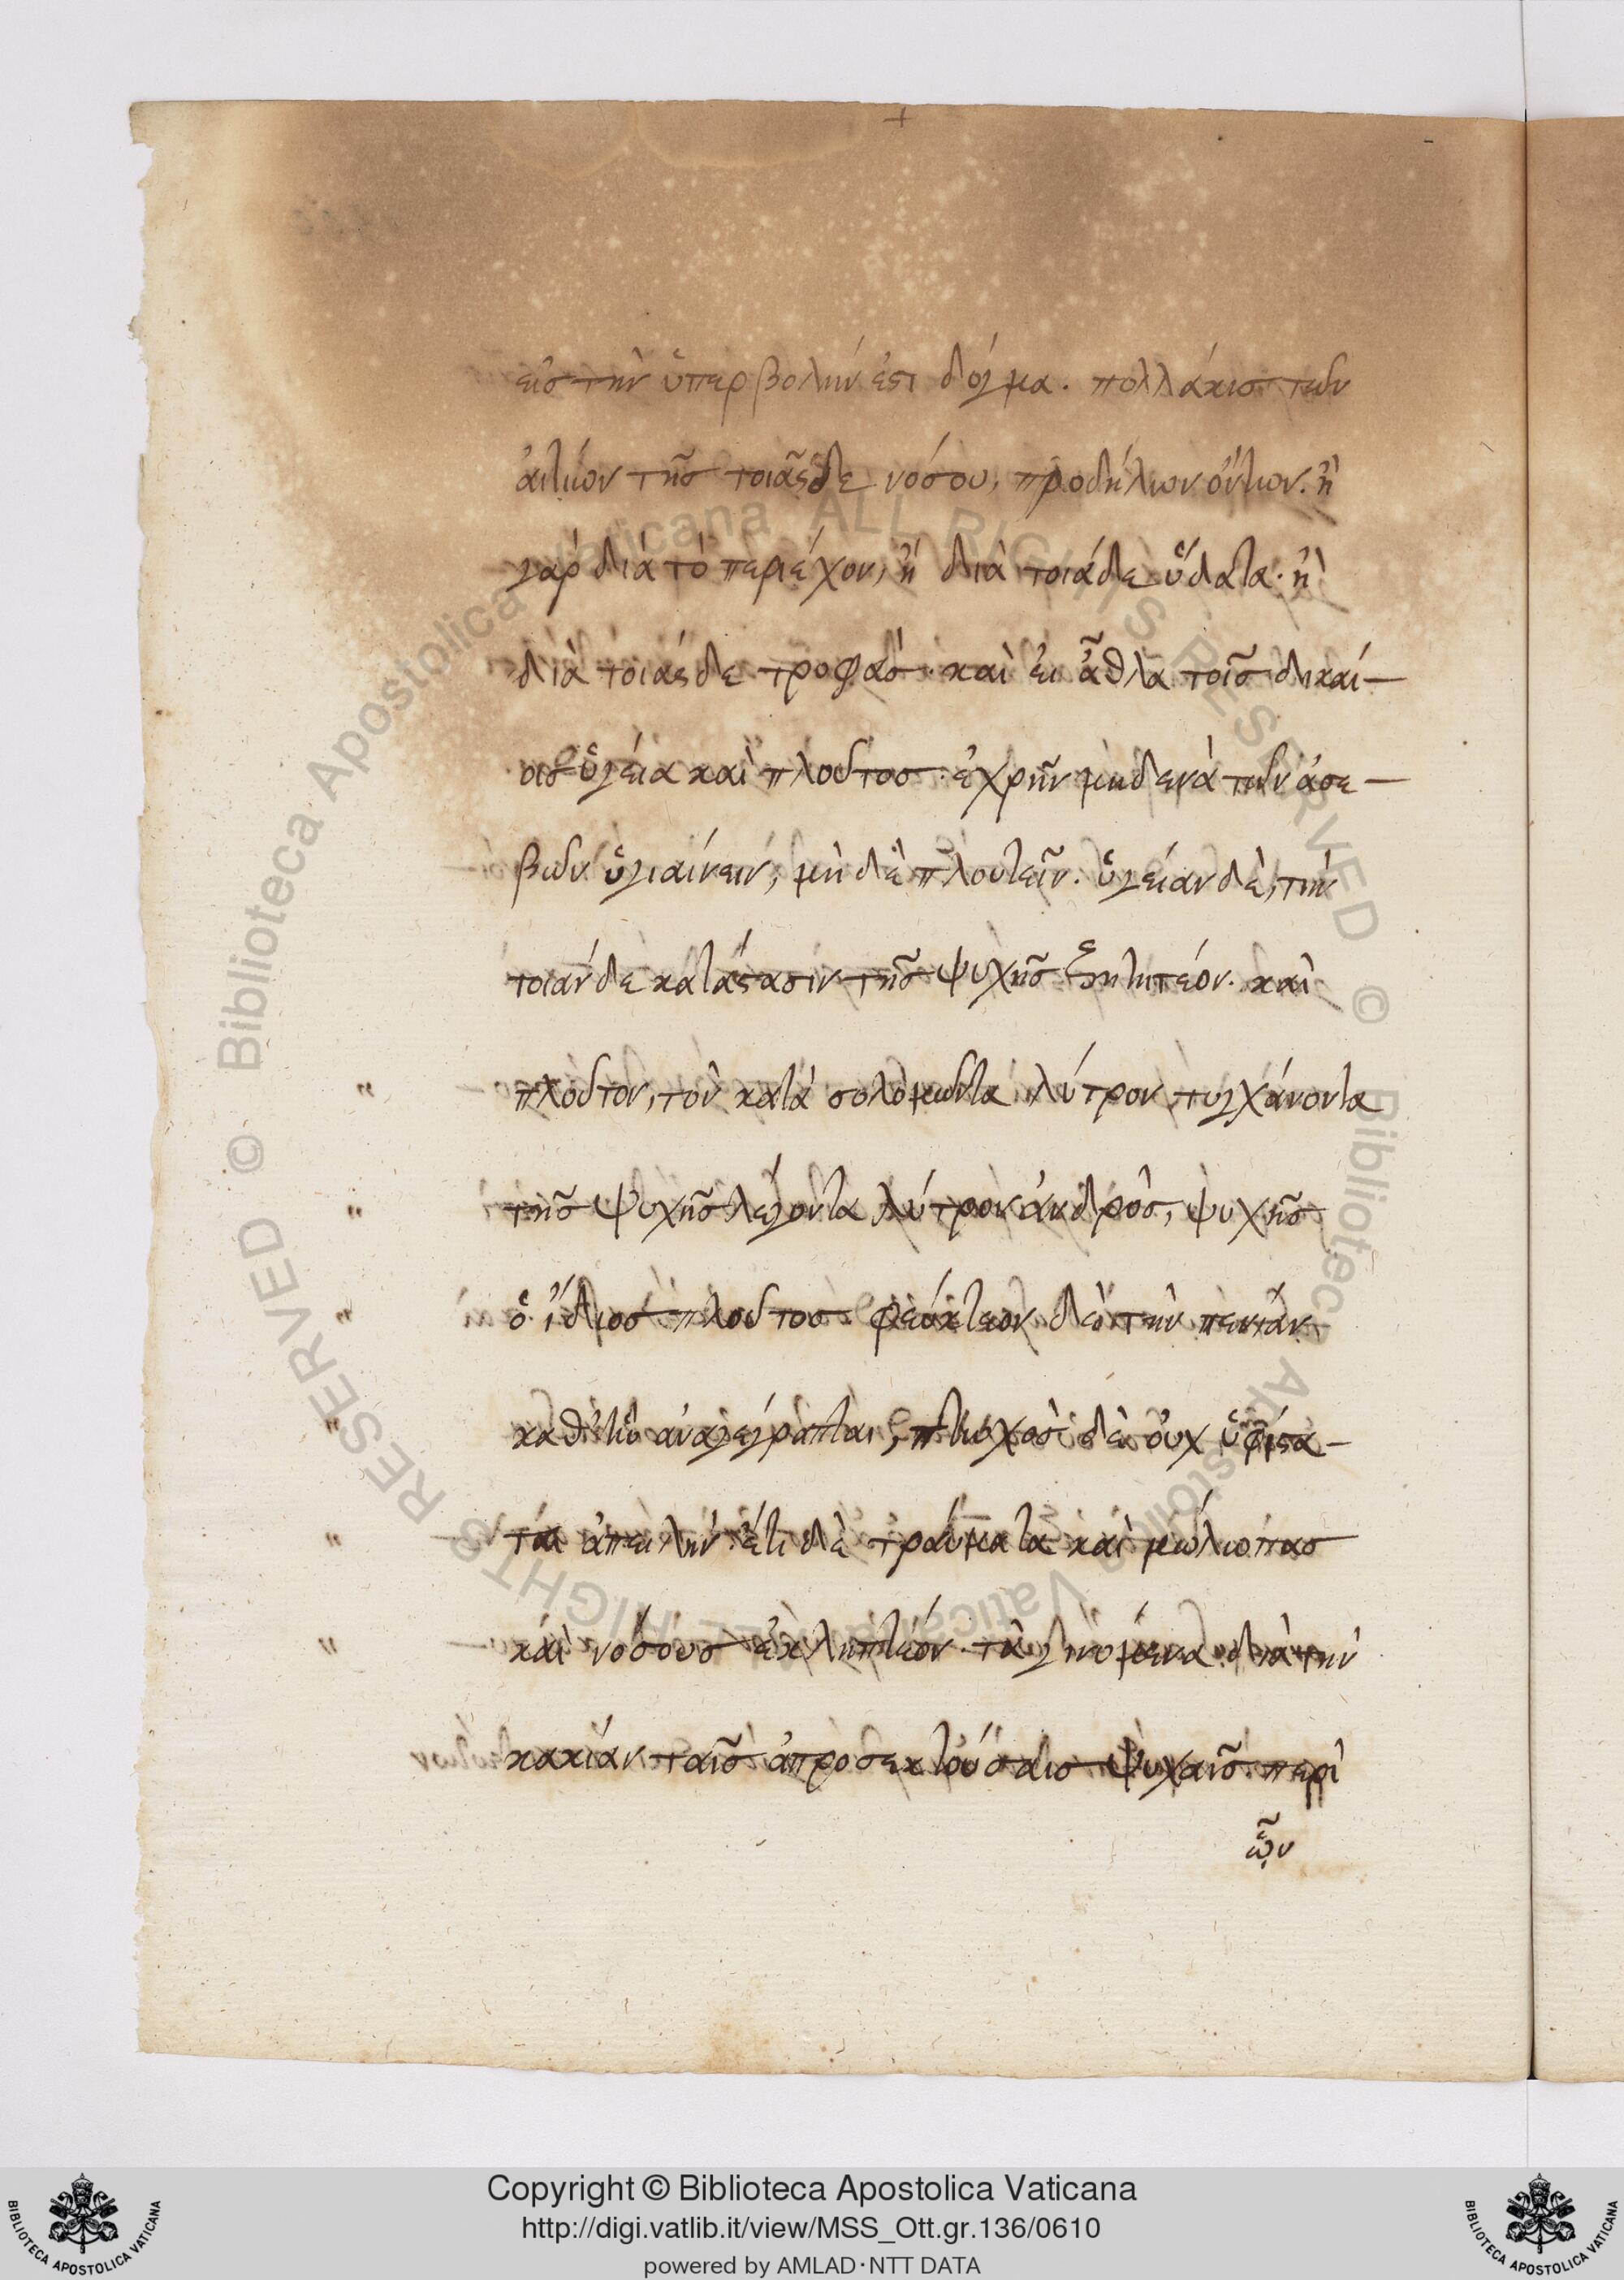 εἰς τὴν ὑπερβολήν ἐστι δόγμα. πολλάκις τῶν
ἀιτίων τῆς τοιᾶσδε νόσου, προδήλων ὄντων. ἢ
γὰρ διὰ τὸ περιέχον, ἢ διὰ τοιάδε ὕδατα. ἢ
διὰ τοιάσδε τροφάς. καὶ ἐι ἆθλα τοῖς δικαί-
οις ὑγεία καὶ πλοῦτος. ἐχρῆν μηδενὰ τῶν ἀσε-
βῶν ὑγιαίνειν, μὴ δὲ πλουτεῖν. ὑγείαν δὲ, τὴν
τοιάνδε κατάστασιν τῆς ψυχῆς ζητητέον. καὶ
πλοῦτον, τὸν κατὰ σολομῶντα λύτρον τυγχάνοντα
τῆς ψυχῆς λέγοντα λύτρον ἀνδρὸς, ψυχῆς
ὁ ἴδιος πλοῦτος. φεύκτεον δὲ τὴν πενίαν
καθ' ἣν ἀναγέγραπται, πτωχὸς δὲ ὀυχ ὑφίστα-
ται ἀπειλήν. ἔτι δὲ τραύματα καὶ μώλωπας
καὶ νόσους ἐκληπτέον. τὰ γινόμενα διὰ τὴν
κακίαν ταῖς ἀπροσεκτούσαις ψυχαῖς. περὶ
ὧν
Copyright © Biblioteca Apostolica Vaticana
http://digi.vatlib.it/view/MSS_Ott.gr.136/0610
powered by AMLAD·NTT DATA
BIBLIOTECA APOSTOLICA VATICANA
BIBLIOTECA APOSTOLICA VATICANA
© Biblioteca Apostolica Vaticana ALL RIGHTS RESERVED
© Biblioteca Apostolica Vaticana ALL RIGHTS RESERVED